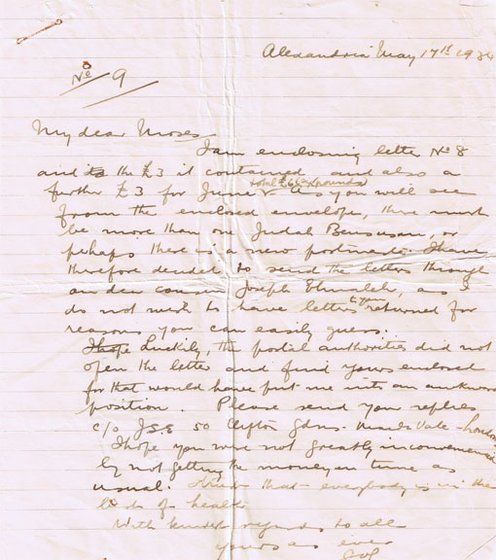 Alexandria May 17th 1934
No 9
My dear Moses
I am enclosing letter No 8
and its the £3 it contained and also a
total £6 (six pounds)
further £3 for June. As you will see
from the enclosed envelope, there must
be more than one Judah Bensusan, or
perhaps there is a new postman. I have
therefore decided to send the letters through
our dear cousin Joseph Elmaleh, as I
to you
do not wish to have letters returned for
reasons you can easily guess.
I hope Luckily, the postal authorities did not
open the letter and find yours enclosed
for that would have put me into an awkward
position. Please send your replies
c/o J.S.E 50 Clifton Gdns. Maida Vale - London
I hope you were not greatly inconvenienced
by not getting the money in time as
usual. that everybody is in the
best of health
With kindest regards to all
yours as ever